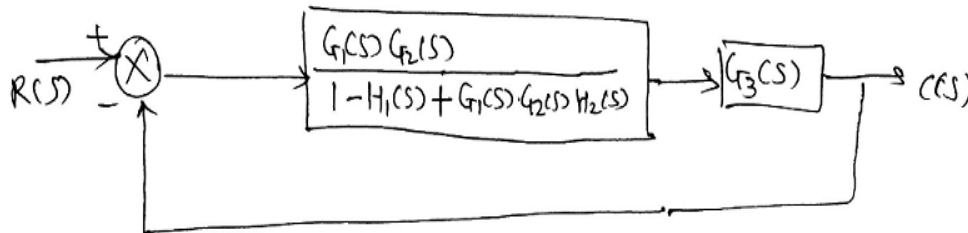 +
R(S)
-
G₁(S) G₂(S)
1 - H₁(S) + G₁(S)·G₂(S) H₂(S)
G₃(S)
C(S)